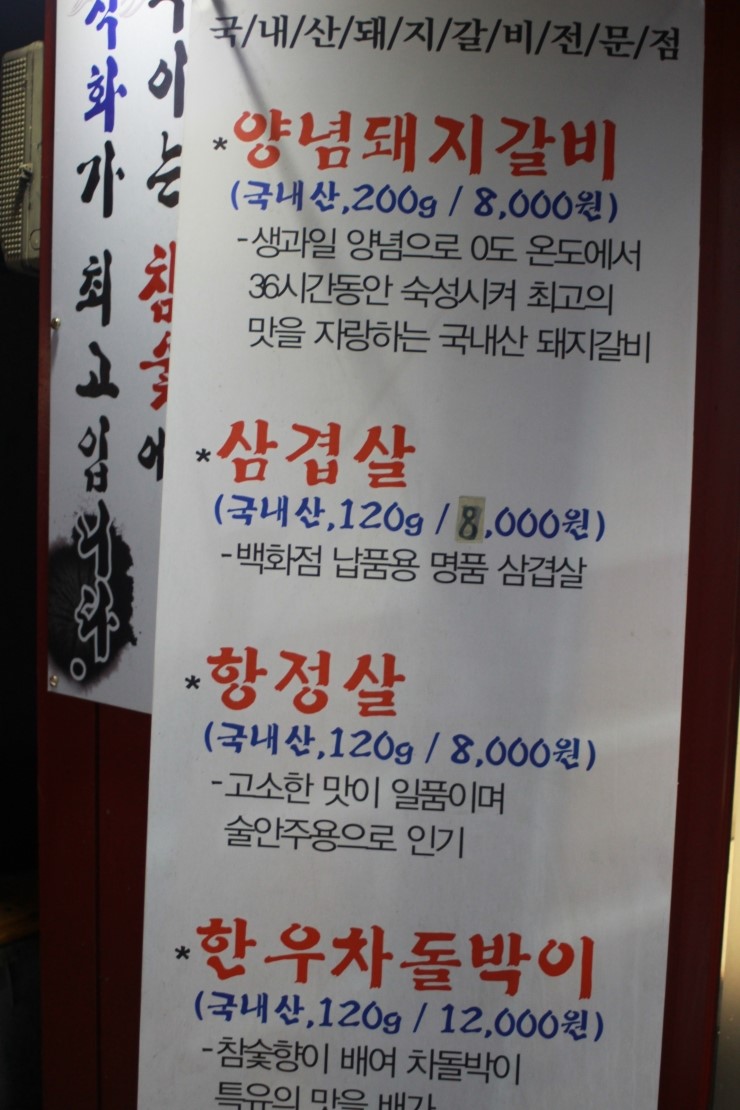 국/내/산/돼/지/갈/비/전/문/점
*양념돼지갈비
(국내산,200g / 8,000원)
-생과일 양념으로 0도 온도에서
36시간동안 숙성시켜 최고의
맛을 자랑하는 국내산 돼지갈비
*삼겹살
(국내산,120g / 8,000원)
-백화점 납품용 명품 삼겹살
*항정살
(국내산,120g / 8,000원)
-고소한 맛이 일품이며
술안주용으로 인기
*한우차돌박이
(국내산,120g / 12,000원)
-참숯향이 배여 차돌박이
특유의 맛을 배가
구이는 참숯에
직화가 최고입니다.